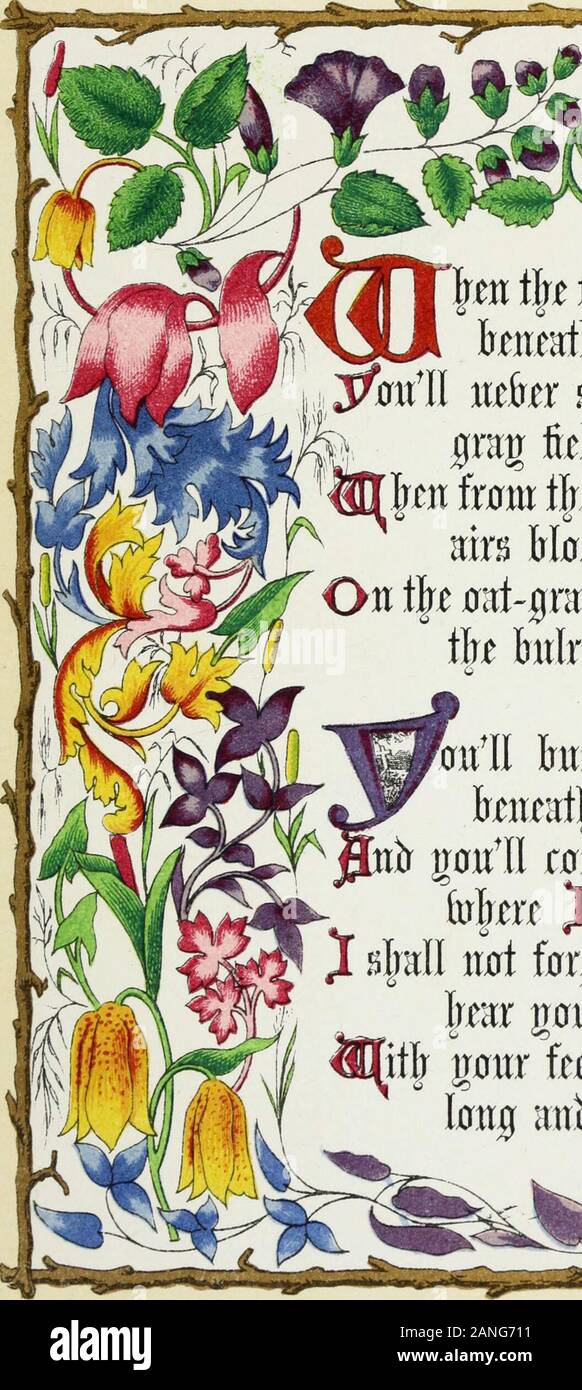 When the f
beneath
You'll never s
gray fiel
When from th
airs blo
On the oat-gra
the bulr
You'll bur
beneath
And you'll co
where I
I shall not for
hear you
With your fee
long and
alamy
alamy
Image ID: 2ANG711
www.alamy.com